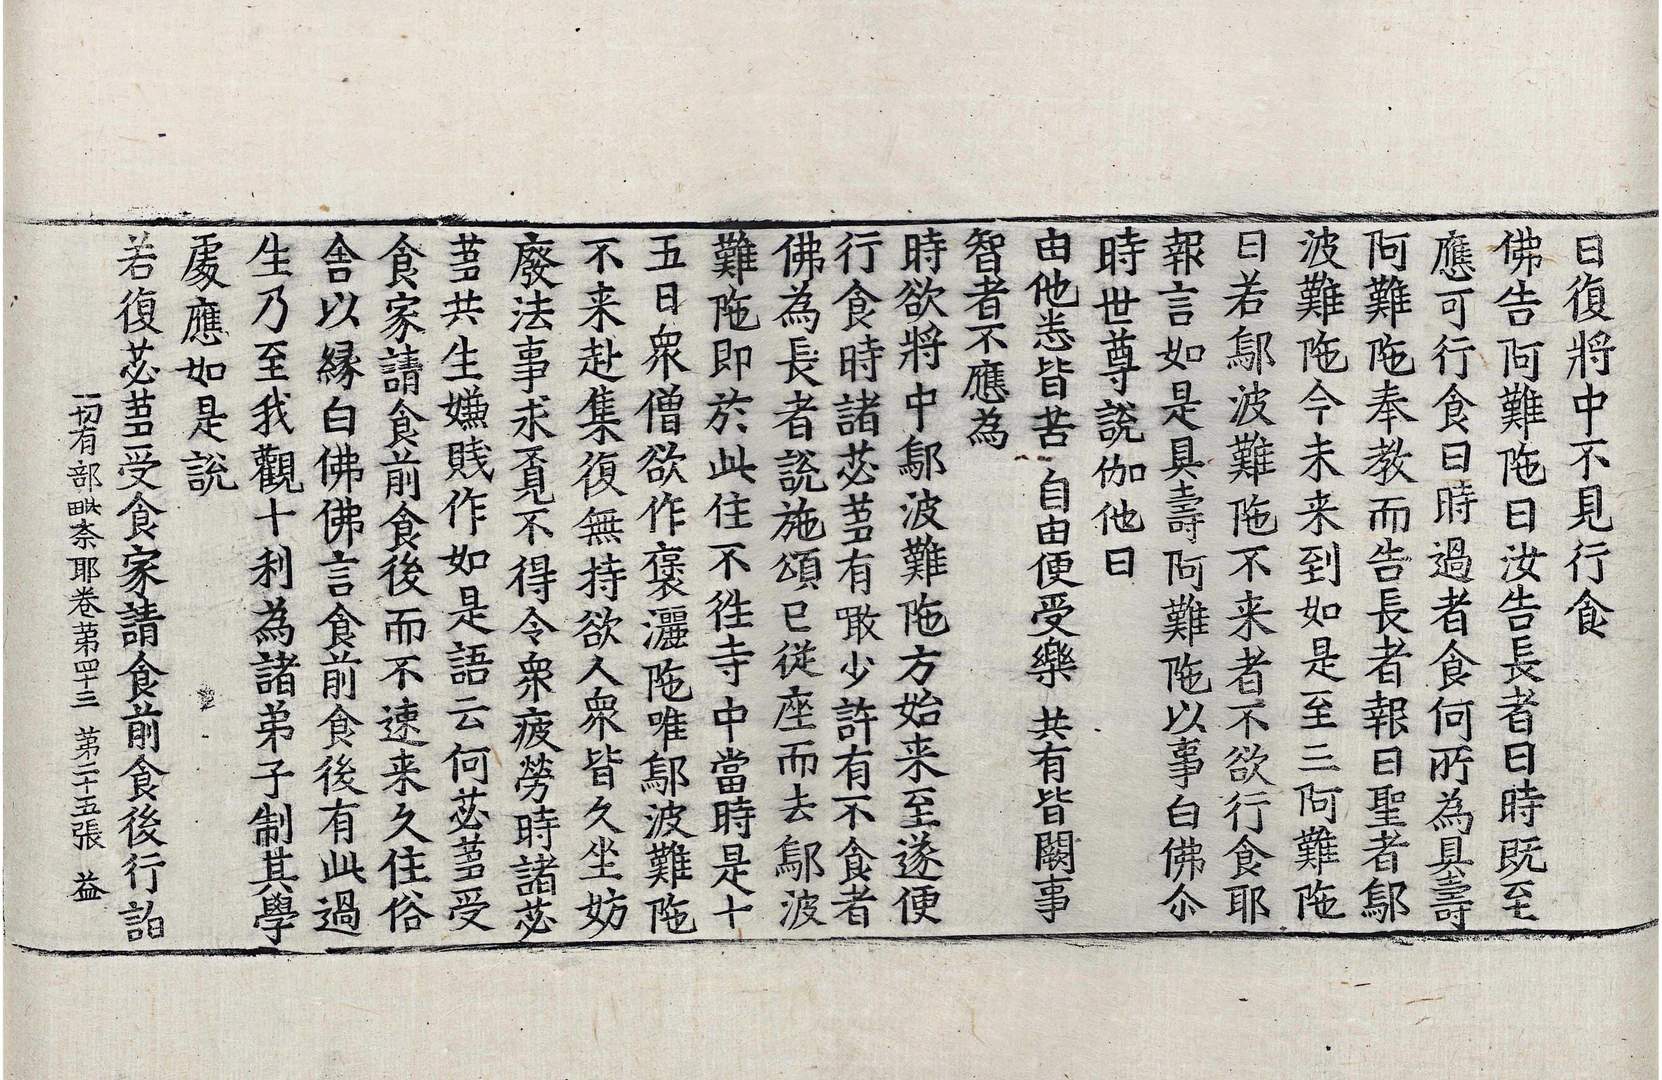 日復將中不見行食
佛告阿難陁曰汝告長者曰時既至
應可行食曰時過者食何所為具壽
阿難陁奉教而告長者報曰聖者鄔
波難陁今未来到如是至三阿難陁
曰若鄔波難陁不来者不欲行食耶
報言如是具壽阿難陁以事白佛尒
時世尊說伽他曰
由他悉皆苦 自由便受樂 共有皆闕事
智者不應為
時欲將中鄔波難陁方始来至遂便
行食時諸苾蒭有敢少許有不食者
佛為長者說施頌已從座而去鄔波
難陁即於此住不往寺中當時是十
五日衆僧欲作褒灑陁唯鄔波難陁
不来赴集復無持欲人衆皆久坐妨
廢法事求覔不得令衆疲勞時諸苾
蒭共生嫌賤作如是語云何苾蒭受
食家請食前食後而不速来久住俗
舎以縁白佛佛言食前食後有此過
生乃至我觀十利為諸弟子制其學
處應如是說
若復苾蒭受食家請食前食後行詣
一切有部毗柰耶卷苐四十三 苐二十五張 益